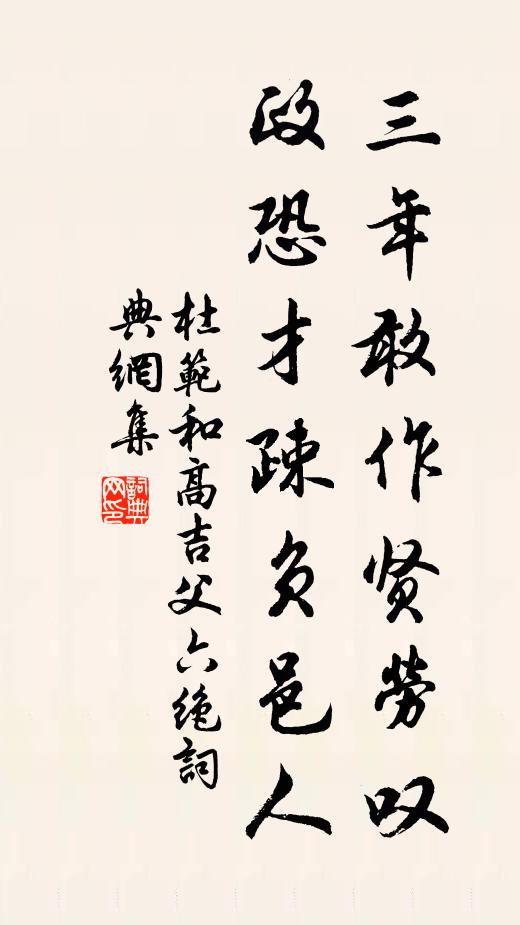 三年敢作贤勞叹
政恐才疎负邑人
杜範和高吉父六绝詞
典網集
詞典网印